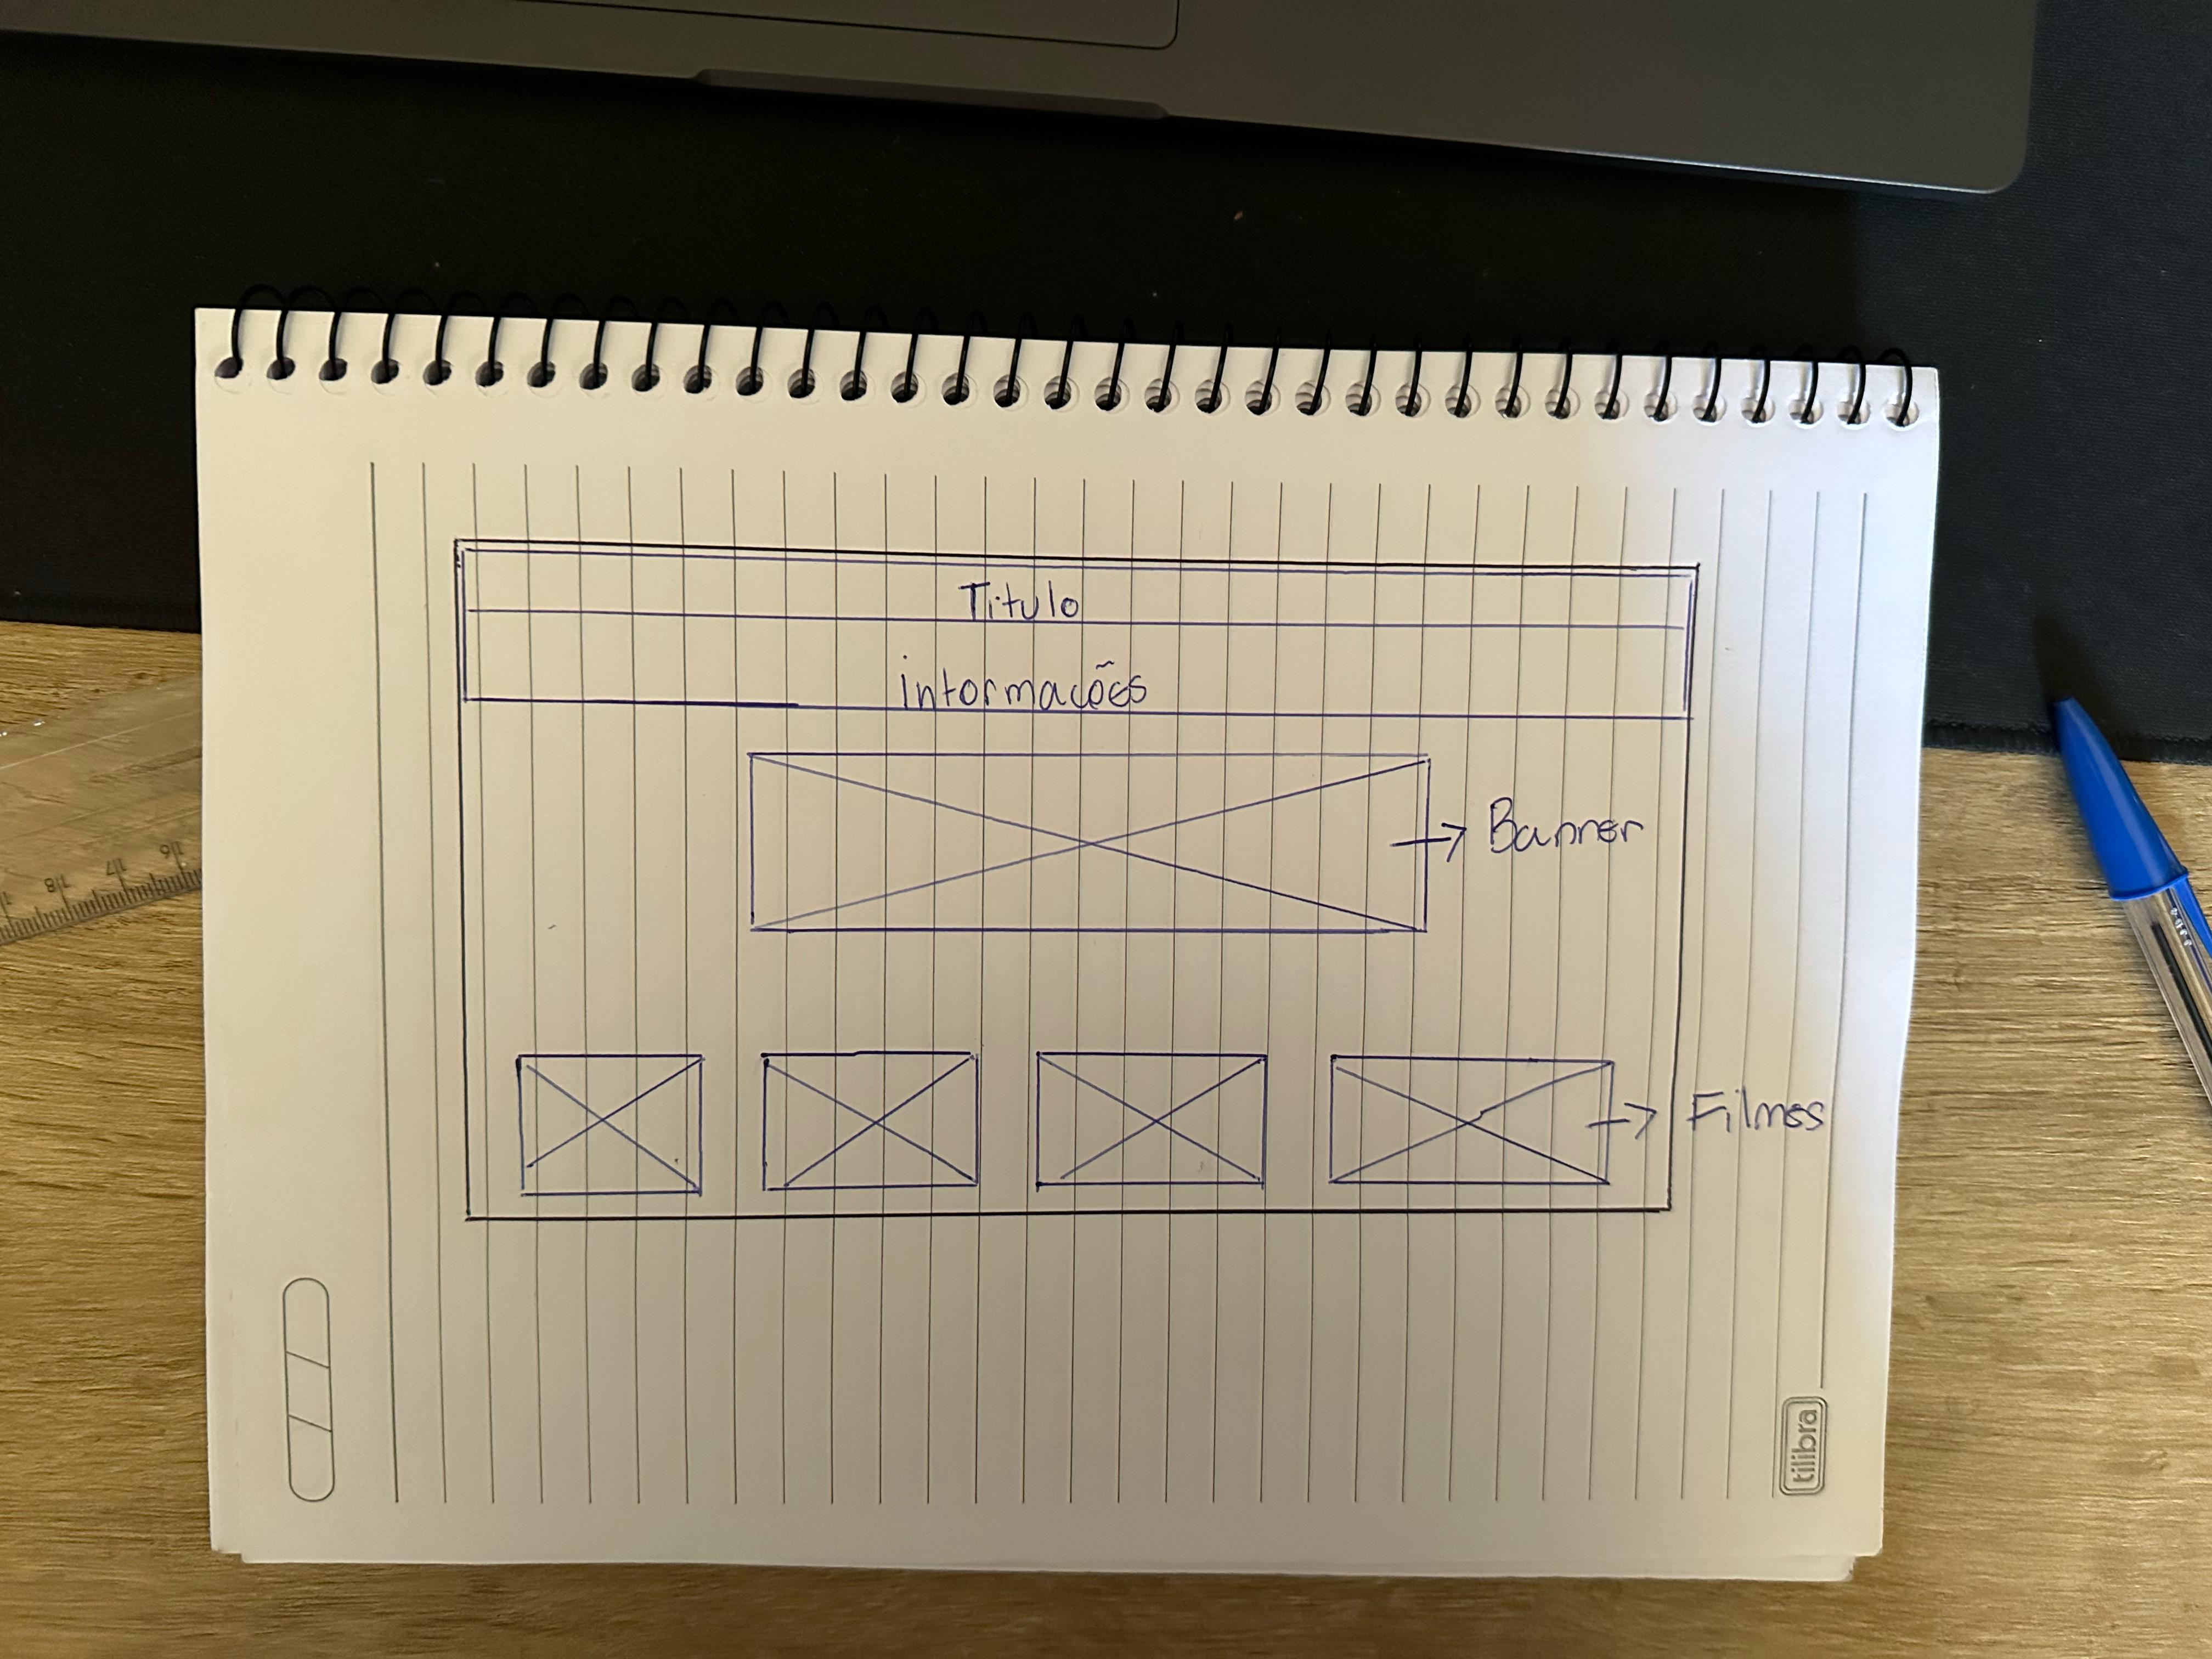 Titulo
informações
Banner
Filmes
tilibra